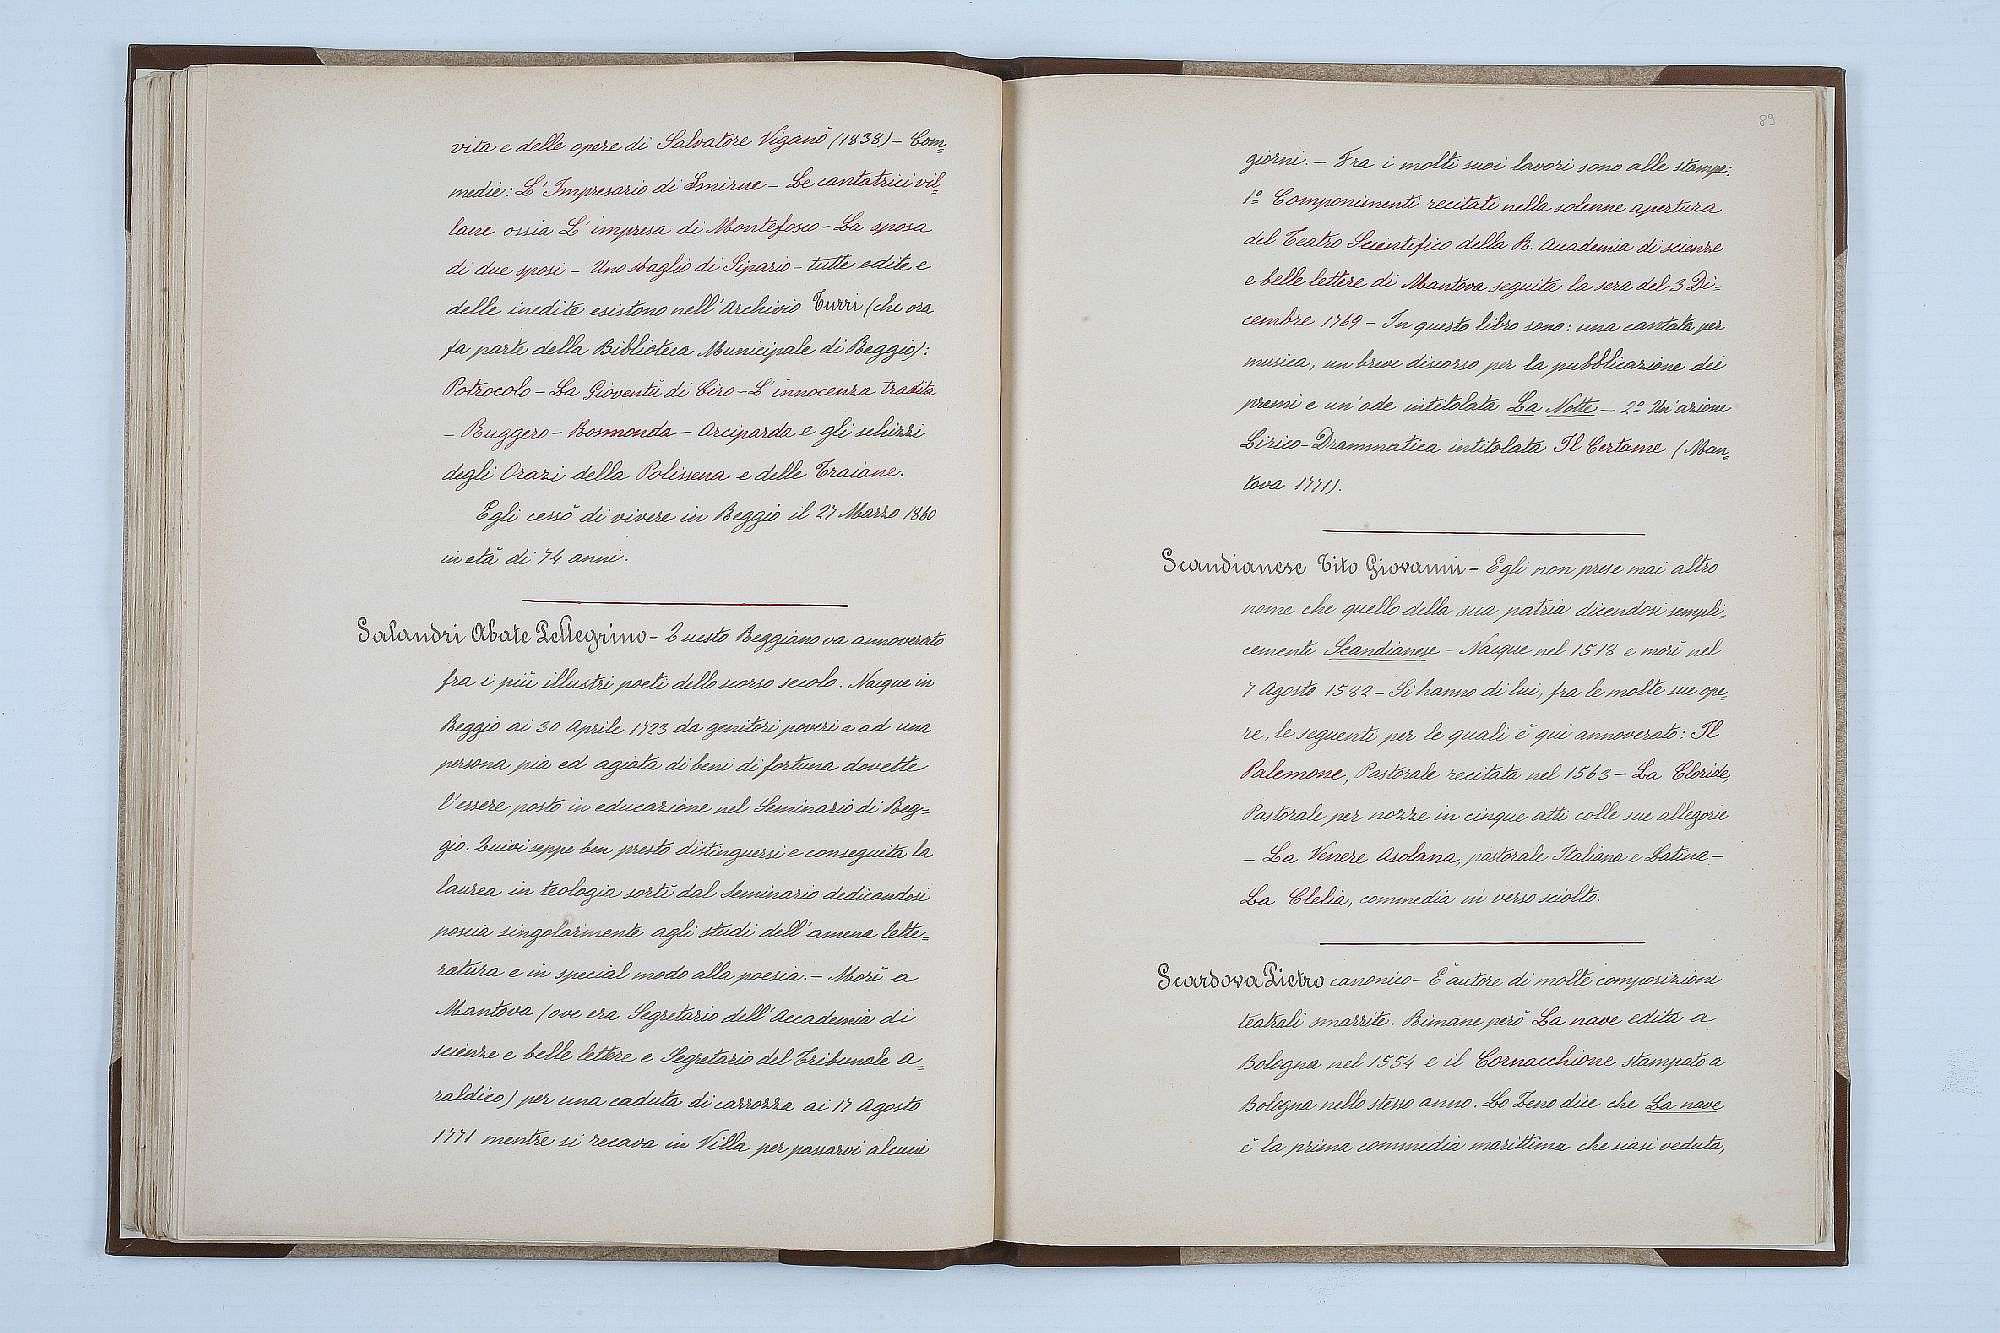 vita e delle opere di Salvatore Viganò (1838) - Com=
medie: L'Impresario di Smirne - Le cantatrici vil=
lane ossia L'impresa di Montefosco - La sposa
di due sposi - Uno sbaglio di Sipario - tutte edite e
delle inedite esistono nell'Archivio Turri (che ora
fa parte della Biblioteca Municipale di Reggio):
Patrocolo - La Gioventù di Ciro - L'innocenza tradita
- Ruggero - Rosmonda - Arciparda e gli schizzi
degli Orazi della Polissena e delle Troiane.
Egli cessò di vivere in Reggio il 27 Marzo 1860
in età di 74 anni.
Salandri Abate Pellegrino - Questo Reggiano va annoverato
fra i più illustri poeti dello scorso secolo. Nacque in
Reggio ai 30 Aprile 1723 da genitori poveri e ad una
persona pia ed agiata di beni di fortuna dovette
l'essere posto in educazione nel Seminario di Reg=
gio. Quivi seppe ben presto distinguersi e conseguita la
laurea in teologia sortì dal Seminario dedicandosi
poscia singolarmente agli studi dell'amena lette=
ratura e in special modo alla poesia. - Morì a
Mantova (ove era Segretario dell'Accademia di
scienze e belle lettere e Segretario del Tribunale A=
raldico) per una caduta di carrozza ai 17 Agosto
1771 mentre si recava in Villa per passarvi alcuni
89
giorni. - Fra i molti suoi lavori sono alle stampe:
1º Componimenti recitati nella solenne apertura
del Teatro Scientifico della R. Accademia di scienze
e belle lettere di Mantova seguita la sera del 3 Di=
cembre 1769 - In questo libro sono: una cantata per
musica, un breve discorso per la pubblicazione dei
premi e un'ode intitolata La Notte - 2º Un'azione
Lirico-Drammatica intitolata Il Certame (Man=
tova 1771).
Scandianese Tito Giovanni - Egli non prese mai altro
nome che quello della sua patria dicendosi sempli=
cemente Scandianese - Nacque nel 1518 e morì nel
7 Agosto 1582 - Si hanno di lui, fra le molte sue ope=
re, le seguenti per le quali è qui annoverato: Il
Palemone, Pastorale recitata nel 1563 - La Cloride
Pastorale per nozze in cinque atti colle sue allegorie
- La Venere Asolana, pastorale Italiana e Latina -
La Clelia, commedia in verso sciolto.
Scardova Pietro canonico - È autore di molte composizioni
teatrali smarrite. Rimane però La nave edita a
Bologna nel 1554 e il Cornacchione stampato a
Bologna nello stesso anno. Lo Zeno dice che La nave
è la prima commedia marittima che siasi veduta,